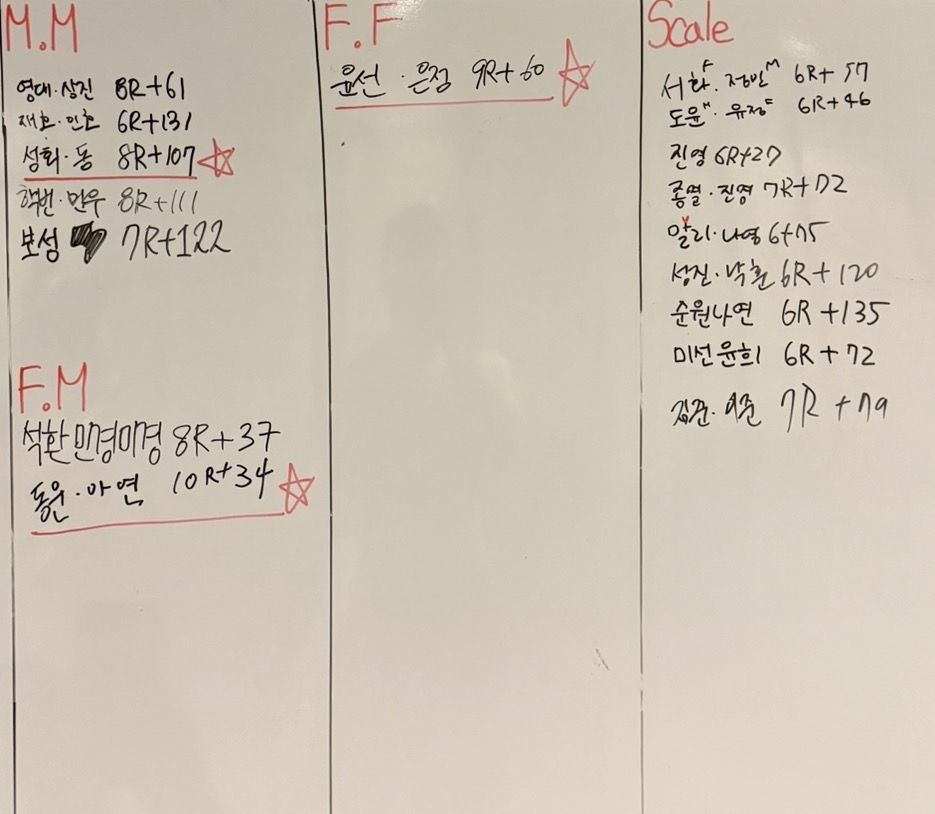 M.M
영대·상진 8R+61
재호·민호 6R+131
성희·동 8R+107
학번·민우 8R+111
보성 7R+122
F.M
석환 민경미경 8R+37
동윤·아연 10R+34
F.F
윤선·은정 9R+60
Scale
서화F·정민M 6R+57
도윤M·유정F 6R+46
진영 6R+27
종열·진경 7R+72
말리·나영 6+75
성진·낙훈 6R+120
순원나연 6R+135
미선윤희 6R+72
7R+79